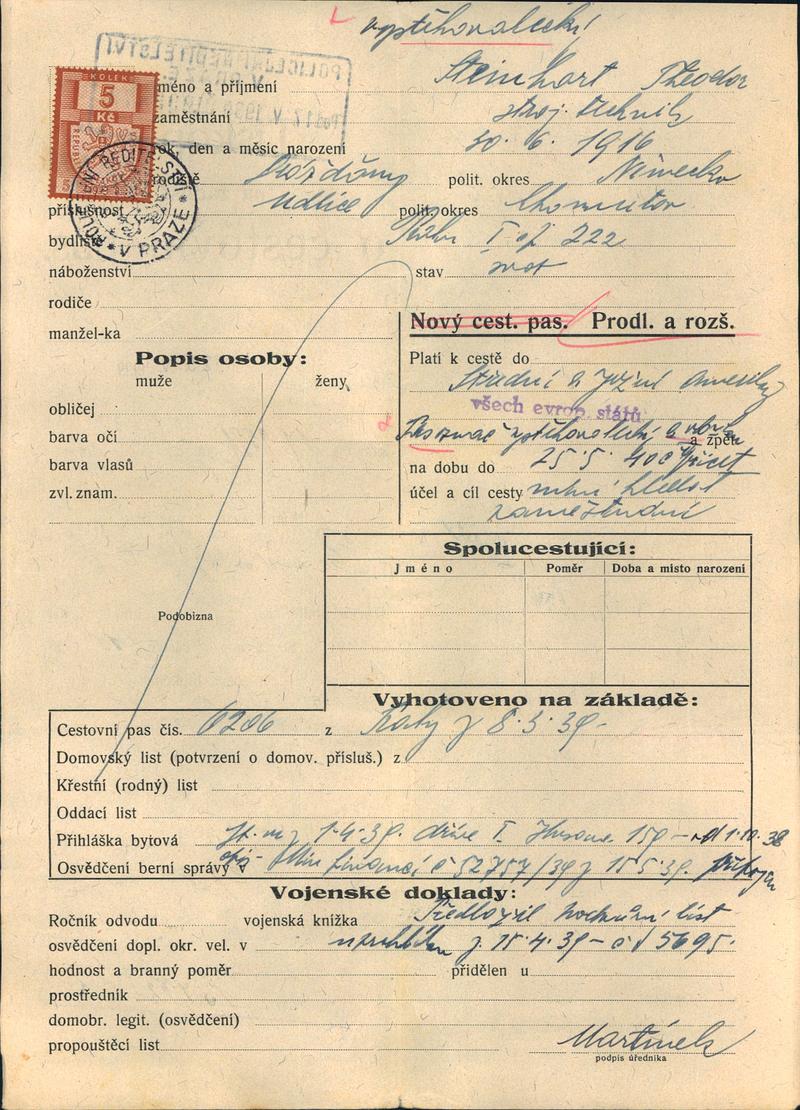 vystěhovalecký!
KOLEK
5
Kč
POLICEJNÍ ŘEDITELSTVÍ
V PRAZE
POLIC. ŘEDITELSTVÍ * V PRAZE *
jméno a příjmení Steinhart Theodor
zaměstnání stroj. technik
rok, den a měsíc narození 30. 6. 1916
rodiště polit. okres Německo
příslušnost Udlice polit. okres Chomutov
bydliště I čp 222
náboženství stav svob
rodiče
manžel-ka
Nový cest. pas. Prodl. a rozš.
Popis osoby:
muže ženy
Platí k cestě do
Střední a jižní Ameriky
všech evrop. států
obličej
barva očí
a zpět
barva vlasů
na dobu do 25. 5. 40
zvl. znam.
účel a cíl cesty hledat
zaměstnání
Spolucestující:
Jméno Poměr Doba a místo narození
Podobizna
Vyhotoveno na základě:
Cestovní pas čís. 6206 z z 8. 3. 39 -
Domovský list (potvrzení o domov. přísluš.) z
Křestní (rodný) list
Oddací list
Přihláška bytová z 1. 4. 39. dříve I. Husova 159 - od 1. 10. 38
Osvědčení berní správy v Min financí č 52757/39 z 15. 5. 39.
Vojenské doklady:
Ročník odvodu vojenská kniha Předložil list
osvědčení dopl. okr. vel. v z 15. 4. 39 - 5695.
hodnost a branný poměr přidělen u
prostředník
domobr. legit. (osvědčení)
propouštěcí list Martínek
podpis úředníka